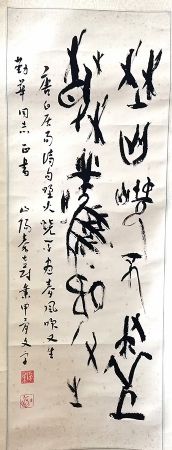 埜火燒不盡
春風吹又生
唐白居易詩句埜火燒不盡春風吹又生
勤華同志正
山陽 士蔚集甲骨文字